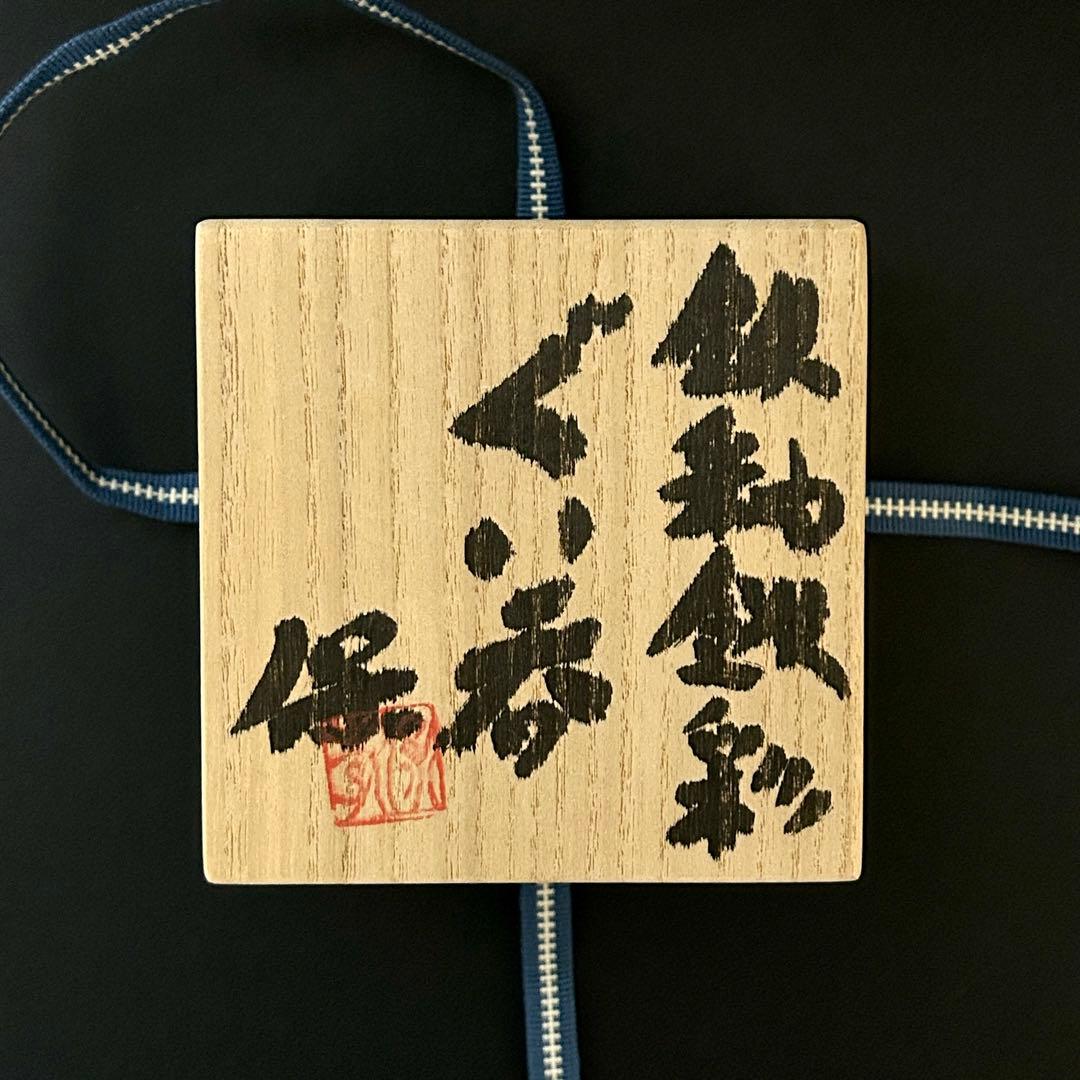 鉄釉銀彩
ぐい呑
保